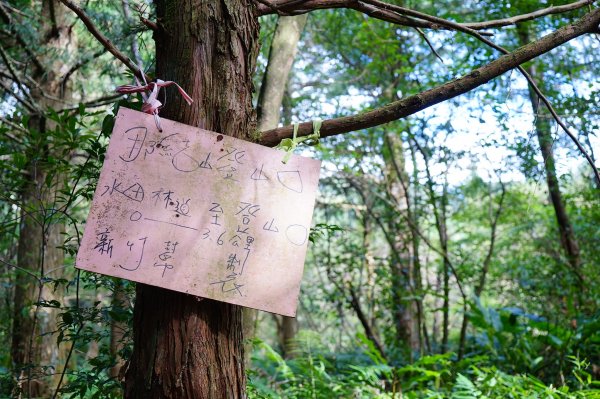 那山登山口
水田林道至登山口
0——3.6公里
新竹 製